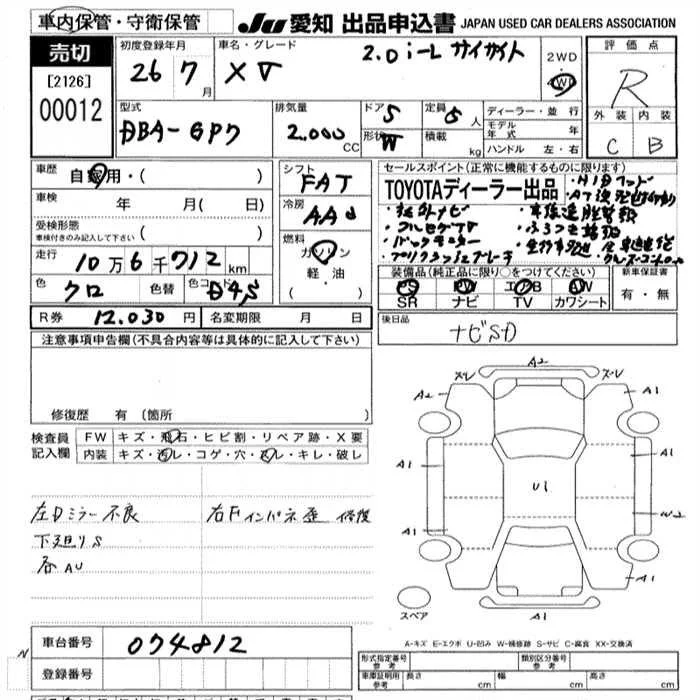 車内保管・守衛保管 JU 愛知 出品申込書 JAPAN USED CAR DEALERS ASSOCIATION
売切 初度登録年月 車名・グレード 評価点
[2126] 26 7 月 XV 2.0i-L アイサイト 2WD 4WD R
00012 型式 排気量 ドア 5 定員 5 人 ディーラー・並行 外装 内装
DBA-GP7 2.000 CC 形状 W 積載 kg モデル年式 年 C B
ハンドル 左・右
車歴 自家用・( ) シフト FAT セールスポイント(正常に機能するものに限ります)
車検 年 月( 日) 冷房 AAC TOYOTAディーラー出品
受検形態 車検付きのみ記入して下さい ( ) ・社外ナビ
走行 10万6千712km 燃料 ガソリン ・バックモニター
軽・油 ( ) ・プリクラッシュブレーキ
色 クロ 色替 色コード D4S 装備品(純正品に限り○をつけてください) 新車保証書
PS PW エアB AW 有・無
SR ナビ TV カワシート
R券 12.030円 名変期限 月 日 後日品
ナビSD
注意事項申告欄(不具合内容等は具体的に記入して下さい)
修復歴 有(箇所 )
検査員記入欄 FW キズ・飛石・ヒビ割・リペア跡・X要
内装 キズ・汚レ・コゲ・穴・スレ・キレ・破レ
左Dミラー不良 右Fインパネ歪 修復
下廻りS
各AU
A2
A2 A1
A1 A1
U1
A1 W2
A1 A1
スペア A1
A-キズ E-エクボ U-凹み W-補修跡 S-サビ C-腐食 XX-交換済
車台番号 074812
登録番号
N
形式指定番号 参考 類別区分番号 参考
車庫証明用 参考 長さ cm 幅 cm 高さ cm